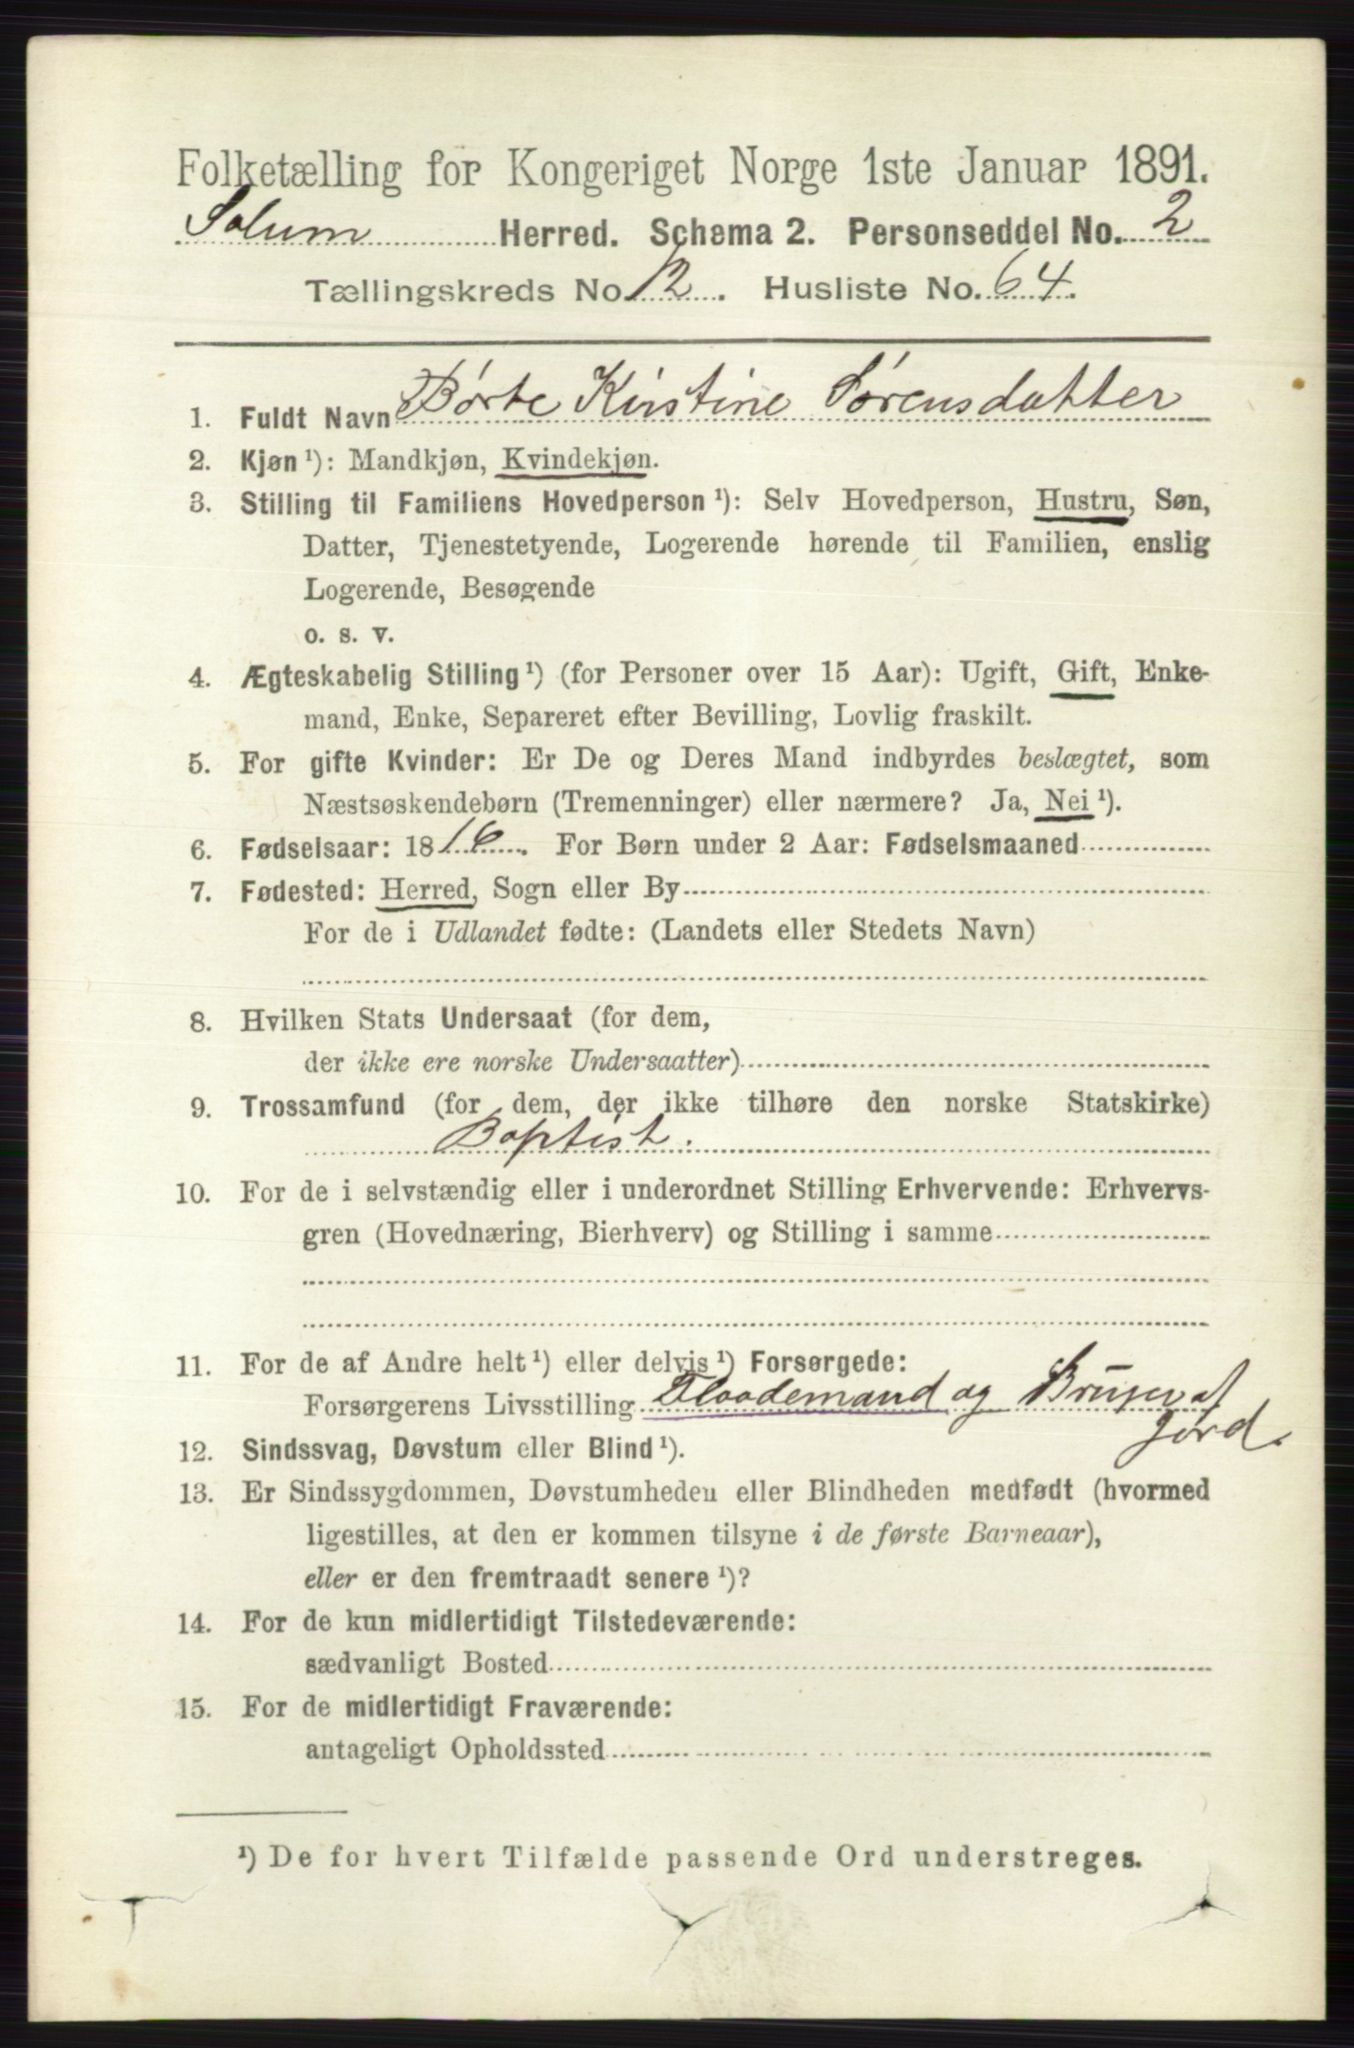 Folketælling for Kongeriget Norge 1ste Januar 1891.
Solum Herred. Schema 2. Personseddel No. 2
Tællingskreds No. 12. Husliste No. 64.
1. Fuldt Navn Børte Kirstine Sørensdatter
2. Kjøn ¹): Mandkjøn, Kvindekjøn.
3. Stilling til Familiens Hovedperson ¹): Selv Hovedperson, Hustru, Søn,
Datter, Tjenestetyende, Logerende hørende til Familien, enslig
Logerende, Besøgende
o. s. v.
4. Ægteskabelig Stilling ¹) (for Personer over 15 Aar): Ugift, Gift, Enke-
mand, Enke, Separeret efter Bevilling, Lovlig fraskilt.
5. For gifte Kvinder: Er De og Deres Mand indbyrdes beslægtet, som
Næstsøskendebørn (Tremenninger) eller nærmere? Ja, Nei ¹).
6. Fødselsaar: 1816. For Børn under 2 Aar: Fødselsmaaned
7. Fødested: Herred, Sogn eller By
For de i Udlandet fødte: (Landets eller Stedets Navn)
8. Hvilken Stats Undersaat (for dem,
der ikke ere norske Undersaatter)
9. Trossamfund (for dem, der ikke tilhøre den norske Statskirke)
Baptist.
10. For de i selvstændig eller i underordnet Stilling Erhvervende: Erhvervs-
gren (Hovednæring, Bierhverv) og Stilling i samme
11. For de af Andre helt ¹) eller delvis ¹) Forsørgede:
Forsørgerens Livsstilling Flaademand og Bruger af
Jord.
12. Sindssvag, Døvstum eller Blind ¹).
13. Er Sindssygdommen, Døvstumheden eller Blindheden medfødt (hvormed
ligestilles, at den er kommen tilsyne i de første Barneaar),
eller er den fremtraadt senere ¹)?
14. For de kun midlertidigt Tilstedeværende:
sædvanligt Bosted
15. For de midlertidigt Fraværende:
antageligt Opholdssted
¹) De for hvert Tilfælde passende Ord understreges.